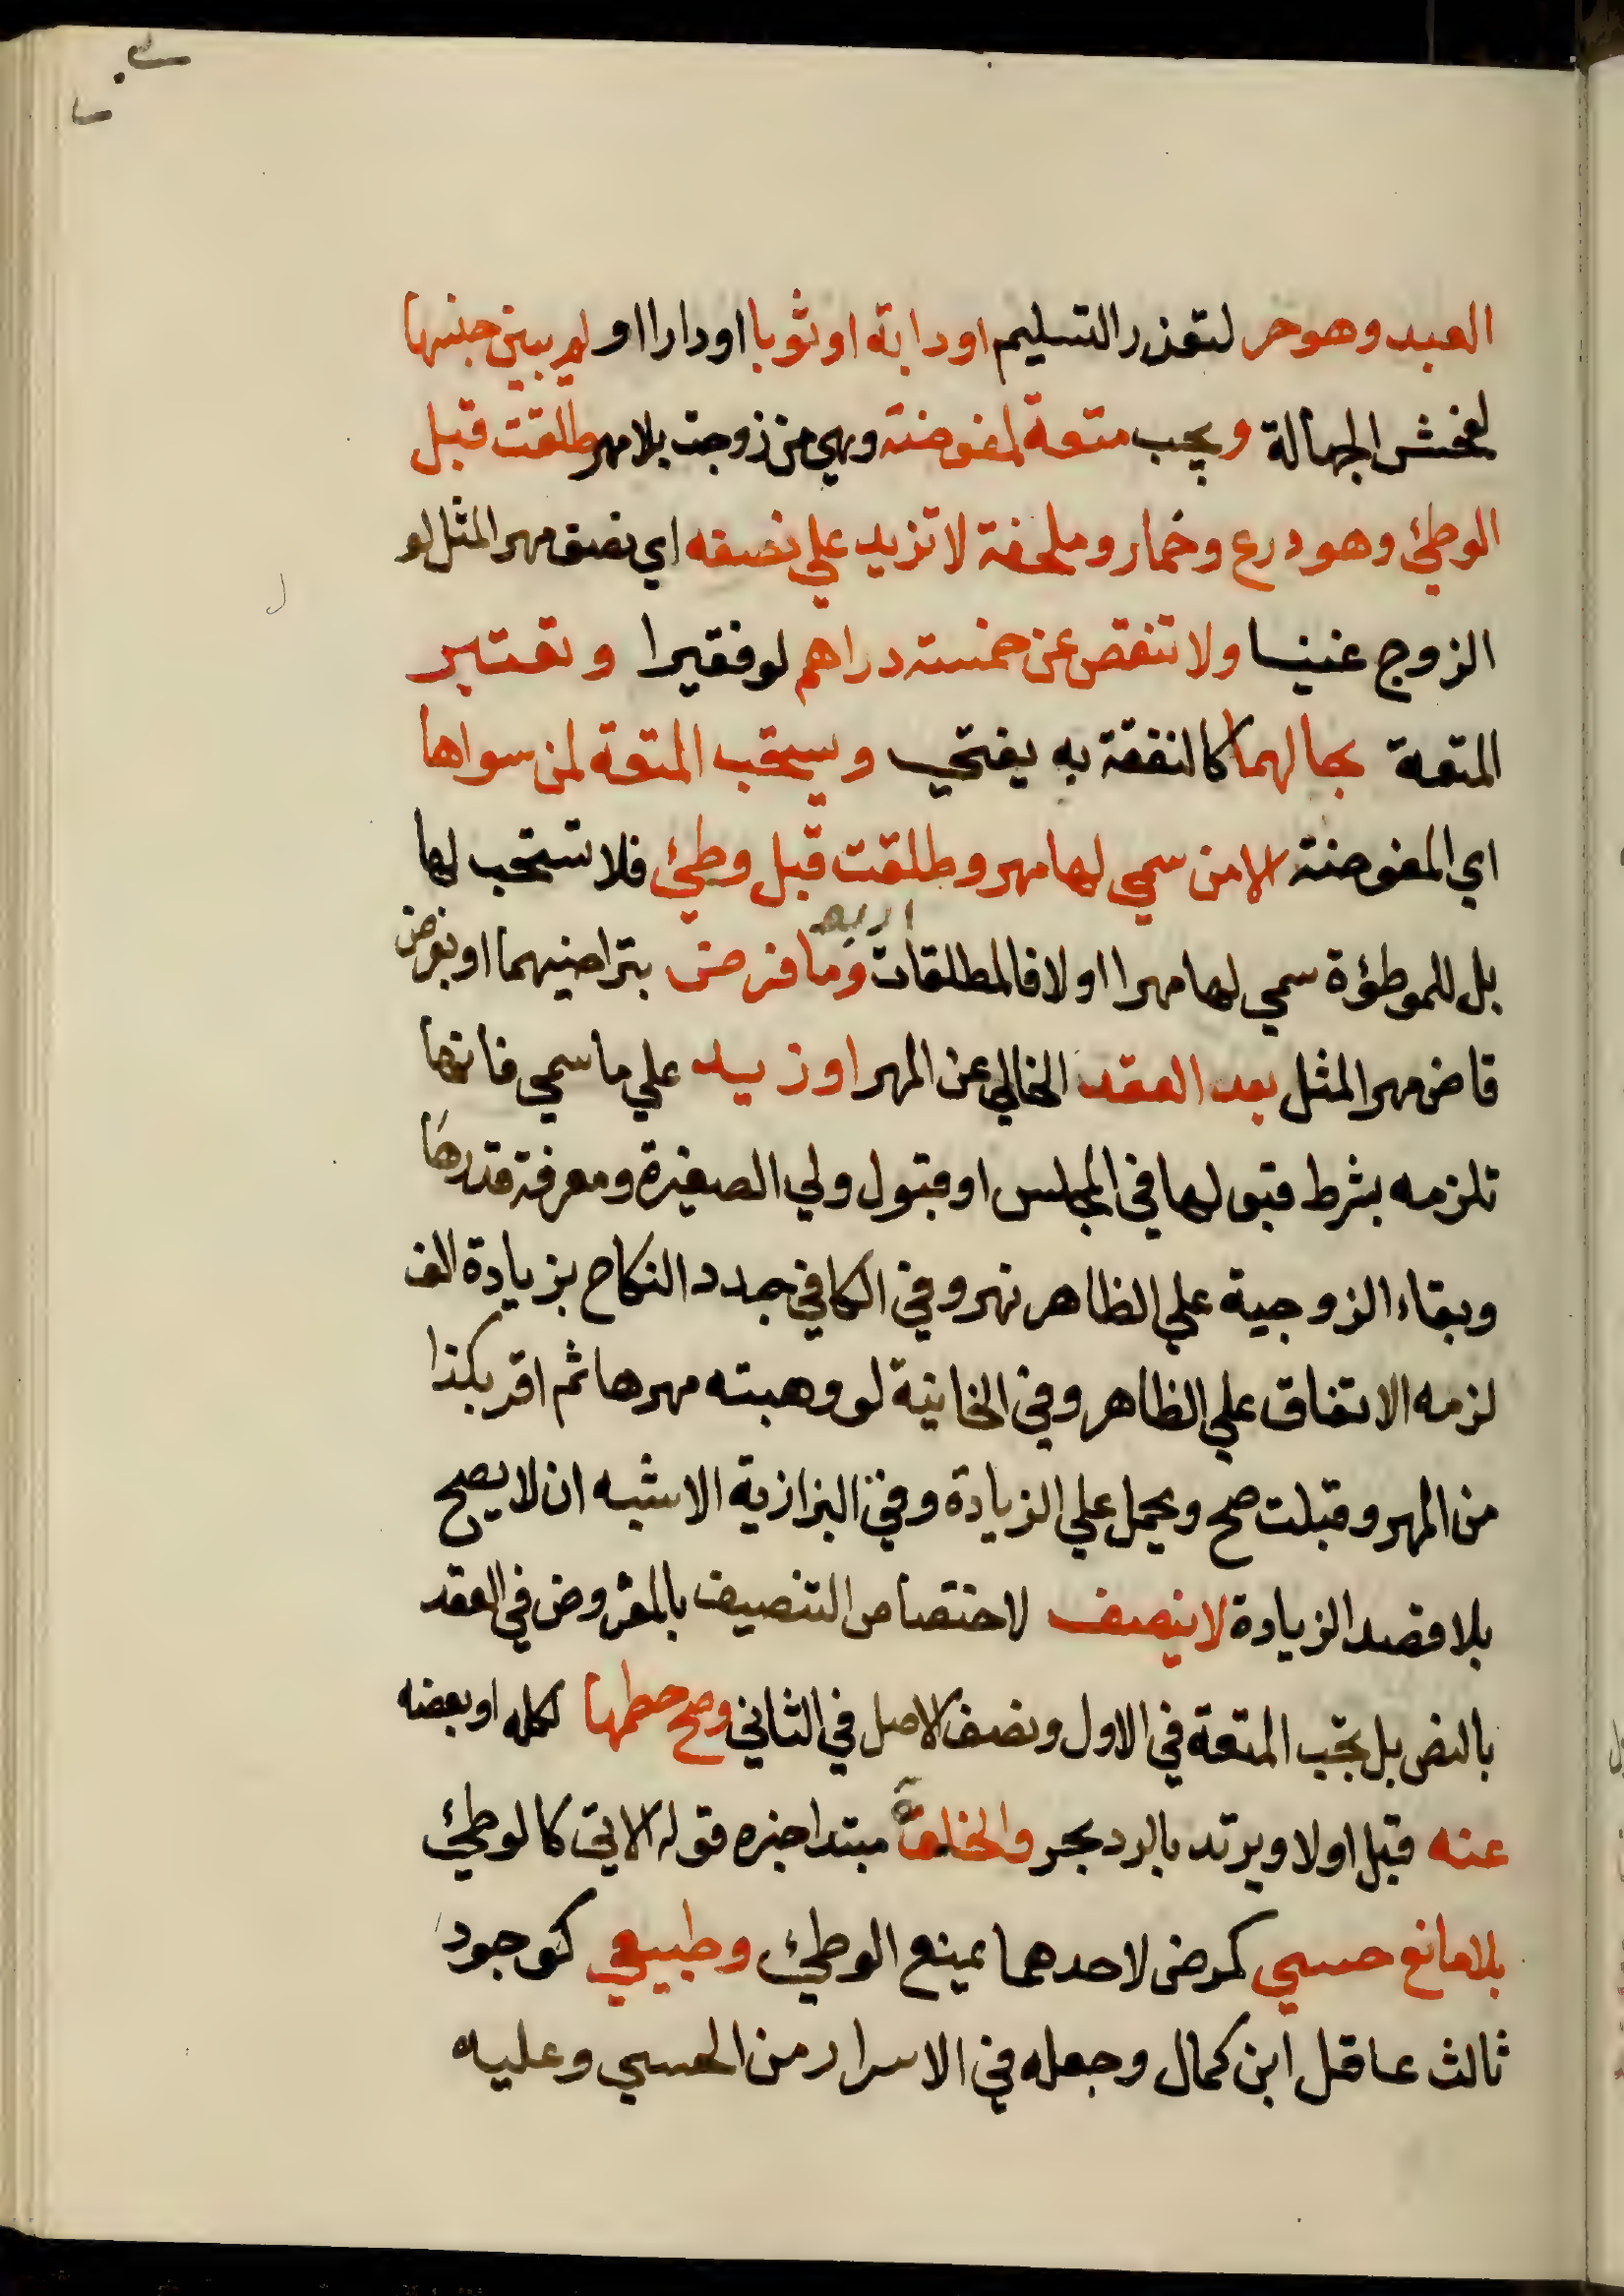 العبد وهو حر لتعذر التسليم او دابة او ثوبا او دارا او لم يبين جنسها
لفحش الجهالة ويجب متعة لمفوضة وهي من زوجت بلا مهر طلقت قبل
الوطئ وهو درع وخمار وملحفة لا تزيد علي نصفه اي نصف مهر المثل لو
الزوج غنيا ولا تنقص عن خمسة دراهم لو فقيرا وتعتبر
المتعة بحالهما كالنفقة به يفتي ويستحب المتعة لمن سواها
اي المفوضة الا من سمي لها مهر وطلقت قبل وطئ فلا تستحب لها
بل للموطؤة سمي لها مهرا او لا فالمطلقات اربعه وما فرض بتراضيهما او بفرض
قاض مهر المثل بعد العقد الخالي عن المهر او زيد علي ما سمي فانها
تلزمه بشرط قبولها في المجلس او قبول ولي الصغيرة ومعرفة قدرها
وبقاء الزوجية علي الظاهر نهر وفي الكافي جدد النكاح بزيادة الف
لزمه الاتفاق علي الظاهر وفي الخانية لو وهبته مهرها ثم اقر بكذا
من المهر وقبلت صح ويحمل علي الزيادة وفي البزازية الاشبه ان لا يصح
بلا قصد الزيادة لا ينصف لاختصاص التنصيف بالمفروض في العقد
بالنص بل تجب المتعة في الاول ونصف الاصل في الثاني وصح حطها لكله او بعضه
عنه قبل او لا ويرتد بالرد بحر والخلوة مبتدا خبره قوله الاتي كالوطئ
بلا مانع حسي كمرض لاحدهما يمنع الوطئ وطبيعي كوجود
ثالث عاقل ابن كمال وجعله في الاسرار من الحسي وعليه